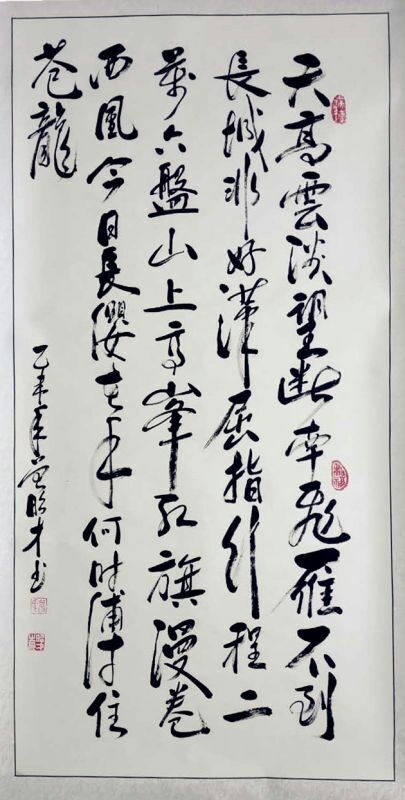 天高雲淡望斷南飛雁不到
長城非好漢屈指行程二
萬六盤山上高峯红旗漫卷
西風今日長纓在手何時縛住
蒼龍
乙未年明才书